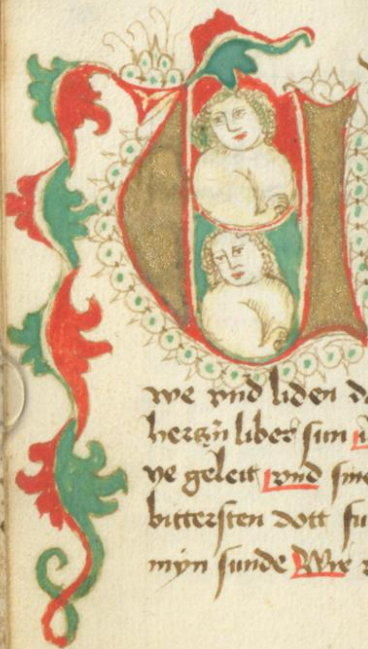 we vnd liden
hertzn liber sun
ye geleit vnd
bittersten dott
myn sunde Wie